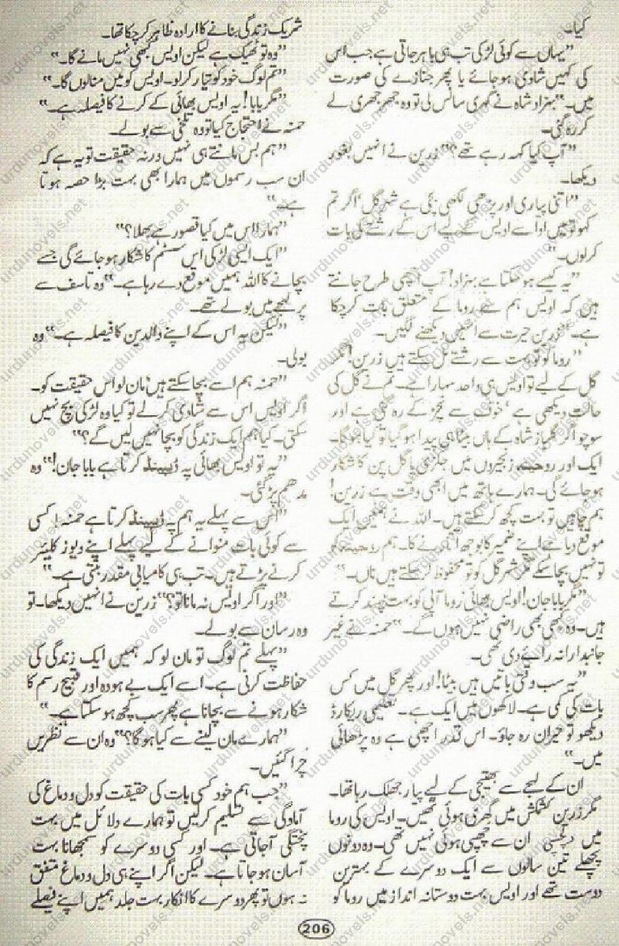 کیا۔
”یہاں سے کوئی لڑکی تب ہی باہر جاتی ہے جب اس
کی کہیں شادی ہو جائے یا پھر جنازے کی صورت
میں۔“ بہزاد شاہ نے گہری سانس لی تو وہ جھرجھری لے
کر رہ گئی۔
”آپ کیا کہہ رہے تھے؟“ زرین نے انہیں بغور
دیکھا۔
”اتنی پیاری اور پڑھی لکھی بچی ہے شہر گل‘ اگر تم
کہو تو میں اواسے اویس کے لیے اس کے رشتے کی بات
کر لوں۔“
”یہ کیسے ہو سکتا ہے بہزاد! آپ اچھی طرح جانتے
ہیں کہ اویس ہم سے روما کے متعلق بات کر چکا
ہے۔“ زرین حیرت سے انہیں دیکھنے لگیں۔
”روما کو تو بہت سے رشتے مل سکتے ہیں زرین! مگر
گل کے لیے تو اویس ہی واحد سہارا ہے۔ تم نے گل کی
حالت دیکھی ہے‘ خوف سے نچڑ کے رہ گئی ہے اور
سوچو اگر شہباز شاہ کے ہاں بیٹا ہی پیدا ہو گیا تو کیا ہو گا۔
ایک اور روحینہ زنجیروں میں جکڑی پاگل پن کا شکار
ہو جائے گی۔ ہمارے ہاتھ میں ابھی وقت ہے زرین!
ہم چاہیں تو بہت کچھ کر سکتے ہیں۔ اللہ نے ہمیں ایک
موقع دیا ہے اپنے ضمیر کا بوجھ اتارنے کا۔ ہم روحینہ کو
تو نہیں بچا سکے مگر شہر گل کو تو محفوظ کر سکتے ہیں ناں۔“
”مگر بابا جان! اویس بھائی روما آپی کو بہت پسند کرتے
ہیں۔ وہ کبھی بھی راضی نہیں ہوں گے۔“ حمنہ نے غیر
جانبدارانہ رائے دی تھی۔
”یہ سب وقتی باتیں ہیں بیٹا! اور پھر گل میں کس
بات کی کمی ہے۔ لاکھوں میں ایک ہے۔ تعلیمی ریکارڈ
دیکھو تو حیران رہ جاؤ۔ اس قدر اچھی ہے وہ پڑھائی
میں۔“
ان کے لہجے سے بھتیجی کے لیے پیار جھلک رہا تھا۔
مگر زرین کشمکش میں گھری ہوئی تھیں۔ اویس کی روما
میں دلچسپی ان سے چھپی ہوئی نہیں تھی۔ وہ دونوں
پچھلے تین سالوں سے ایک دوسرے کے بہترین
دوست تھے اور اویس بہت دوستانہ انداز میں روما کو
شریک زندگی بنانے کا ارادہ ظاہر کر چکا تھا۔
”وہ تو ٹھیک ہے لیکن اویس کبھی نہیں مانے گا۔“
”تم لوگ خود کو تیار کر لو۔ اویس کو میں منا لوں گا۔“
”مگر بابا! یہ اویس بھائی کے کرنے کا فیصلہ ہے۔“
حمنہ نے احتجاج کیا تو وہ تلخی سے بولے۔
”ہم بس مانتے ہی نہیں ورنہ حقیقت تو یہ ہے کہ
ان سب رسموں میں ہمارا بھی بہت بڑا حصہ ہوتا
ہے۔“
”ہمارا اس میں کیا قصور ہے بھلا؟“
”ایک ایسی لڑکی اس سسٹم کا شکار ہو جائے گی جسے
بچانے کا اللہ ہمیں موقع دے رہا ہے۔“ وہ تاسف سے
پر لہجے میں بولے تھے۔
”لیکن یہ اس کے اپنے والدین کا فیصلہ ہے۔“ وہ
بولی۔
”حمنہ ہم اسے بچا سکتے ہیں‘ مان لو اس حقیقت کو۔
اگر اویس اس سے شادی کر لے تو کیا وہ لڑکی بچ نہیں
سکتی۔ کیا ہم ایک زندگی کو بچا نہیں لیں گے؟“
”یہ تو اویس بھائی پہ ڈیپینڈ کرتا ہے بابا جان!“ وہ
مدھم پڑ گئی۔
”اس سے پہلے یہ ہم پہ ڈیپینڈ کرتا ہے حمنہ! کسی
سے کوئی بات منوانے کے لیے پہلے اپنے ویوز کلیئر
کرنے پڑتے ہیں۔ تب ہی کامیابی مقدر بنتی ہے۔“
”اور اگر اویس نہ مانا تو؟“ زرین نے انہیں دیکھا۔ تو
وہ رسان سے بولے۔
”پہلے تم لوگ تو مان لو کہ ہمیں ایک زندگی کی
حفاظت کرنی ہے۔ اسے ایک بے ہودہ اور قبیح رسم کا
شکار ہونے سے بچانا ہے پھر سب کچھ ہو سکتا ہے۔“
”ہمارے مان لینے سے کیا ہو گا؟“ وہ ان سے نظریں
چرا گئیں۔
”جب ہم خود کسی بات کی حقیقت کو دل و دماغ کی
آمادگی سے تسلیم کر لیں تو ہمارے دلائل میں بہت
پختگی آ جاتی ہے۔ اور کسی دوسرے کو سمجھانا بہت
آسان ہو جاتا ہے۔ لیکن اگر اپنے ہی دل و دماغ متفق
نہ ہوں تو پھر دوسرے کا انکار بہت جلد ہمیں اپنے فیصلے
206
urdunovels.net